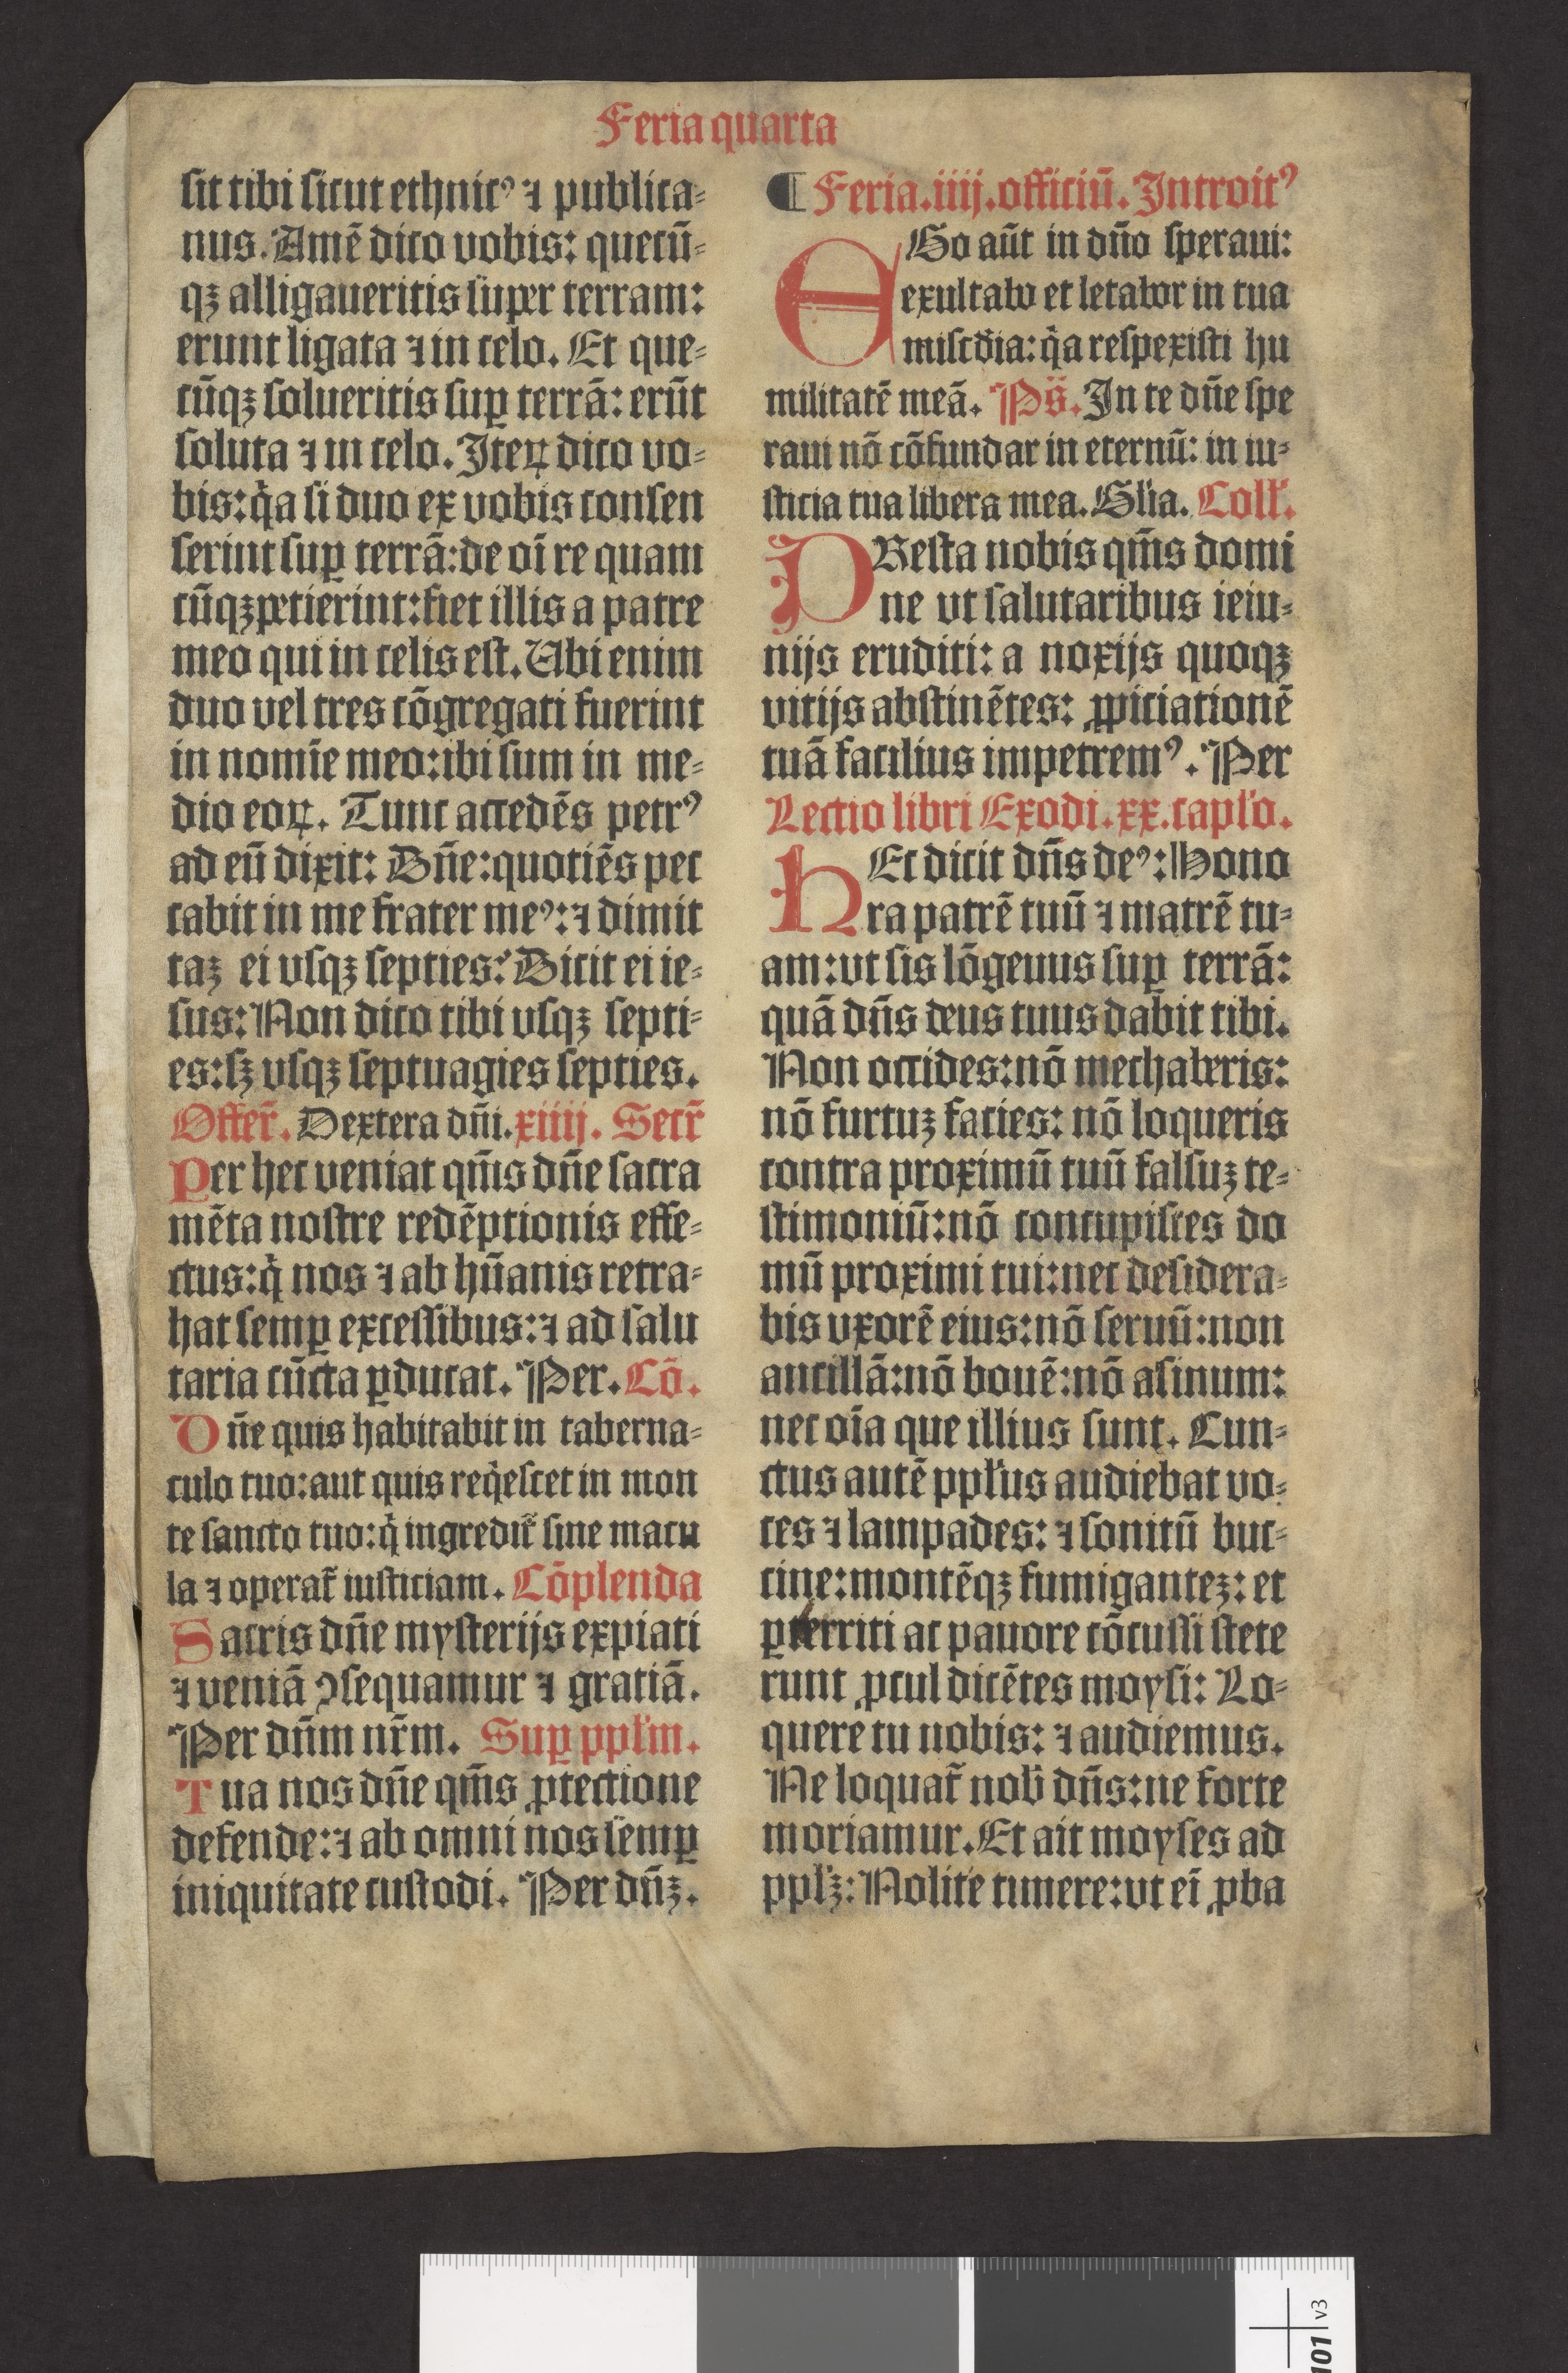 Feria quarta
sit tibi sicut ethnicꝰ ⁊ publica⸗
nus. Amē dico vobis: quecū⸗
qꝫ alligaueritis super terram:
erunt ligata ⁊ in celo. Et que⸗
cūqꝫ solueritis suꝑ terrā: erūt
soluta ⁊ in celo. Iteꝝ dico vo⸗
bis: q̇a si duo ex vobis consen
serint suꝑ terrā: de oī re quam
cūqꝫ petierint: fiet illis a patre
meo qui in celis est. Ubi enim
duo vel tres cōgregati fuerint
in nomīe meo: ibi sum in me⸗
dio eoꝝ. Tunc accedēs petrꝰ
ad eū dixit: Dn̄e: quotiēs pec
cabit in me frater meꝰ: ⁊ dimit
taꝫ ei vsqꝫ septies: Dicit ei ie⸗
sus: Non dico tibi vsqꝫ septi⸗
es: sꝫ vsqꝫ septuagies septies.
Offer̄. Dextera dn̄i. xiiij. Secr̄
Per hec veniat qm̄s dn̄e sacra
mēta nostre redēptionis effe⸗
ctus: q̇ nos ⁊ ab hūanis retra⸗
hat semꝑ excessibus: ⁊ ad salu
taria cūcta ꝑducat. Per. Cō.
Dn̄e quis habitabit in taberna⸗
culo tuo: aut quis req̇escet in mon
te sancto tuo: q̇ ingredit̄ sine macu
la ⁊ operat̄ iusticiam. Cōplenda
Sacris dn̄e mysterijs expiati
⁊ veniā ꝯsequamur ⁊ gratiā.
Per dn̄m nr̄m. Suꝑ ppl̄m.
Tua nos dn̄e qm̄s ꝓtectione
defende: ⁊ ab omni nos semꝑ
iniquitate custodi. Per dn̄ꝫ.
¶ Feria. iiij. officiū. Introitꝰ
EGo aūt in dn̄o speraui:
exultabo et letabor in tua
misc̄dia: q̇a respexisti hu
militatē meā. Ps̄. In te dn̄e spe
raui nō cōfundar in eternū: in iu⸗
sticia tua libera mea. Gl̄ia. Coll̄.
PResta nobis qm̄s domi
ne vt salutaribus ieiu⸗
nijs eruditi: a noxijs quoqꝫ
vitijs abstinētes: ꝓpiciationē
tuā facilius impetremꝰ. Per
Lectio libri Exodi. xx. capl̄o.
HEc dicit dn̄s deꝰ: Hono
ra patrē tuū ⁊ matrē tu⸗
am: vt sis lōgeuus suꝑ terrā:
quā dn̄s deus tuus dabit tibi.
Non occides: nō mechaberis:
nō furtuꝫ facies: nō loqueris
contra proximū tuū falsuꝫ te⸗
stimoniū: nō concupisces do
mū proximi tui: nec desidera⸗
bis vxorē eius: nō seruū: non
ancillā: nō bouē: nō asinum:
nec oīa que illius sunt. Cun⸗
ctus autē ppl̄us audiebat vo⸗
ces ⁊ lampades: ⁊ sonitū buc⸗
cine: montēqꝫ fumiganteꝫ: et
ꝑterriti ac pauore cōcussi stete
runt ꝓcul dicētes moysi: Lo⸗
quere tu nobis: ⁊ audiemus.
Ne loquat̄ nob̄ dn̄s: ne forte
moriamur. Et ait moyses ad
ppl̄ꝫ: Nolite timere: vt eī ꝓba
101 v3